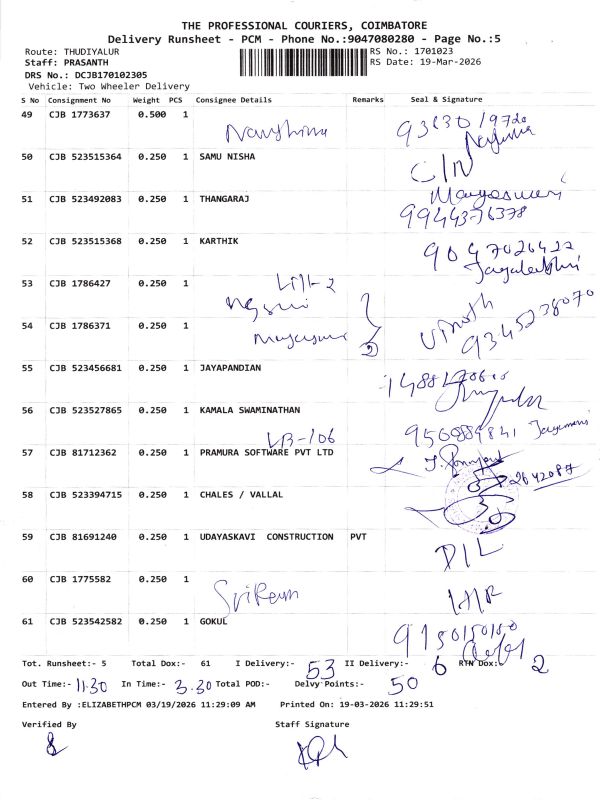 THE PROFESSIONAL COURIERS, COIMBATORE
Delivery Runsheet - PCM - Phone No.:9047080280 - Page No.:5
Route: THUDIYALUR RS No.: 1701023
Staff: PRASANTH RS Date: 19-Mar-2026
DRS No.: DCJB170102305
Vehicle: Two Wheeler Delivery
S No Consignment No Weight PCS Consignee Details Remarks Seal & Signature
49 CJB 1773637 0.500 1
50 CJB 523515364 0.250 1 SAMU NISHA
51 CJB 523492083 0.250 1 THANGARAJ
52 CJB 523515368 0.250 1 KARTHIK
53 CJB 1786427 0.250 1
54 CJB 1786371 0.250 1 Vinoth
9345238070
55 CJB 523456681 0.250 1 JAYAPANDIAN
56 CJB 523527865 0.250 1 KAMALA SWAMINATHAN
57 CJB 81712362 0.250 1 PRAMURA SOFTWARE PVT LTD
2642087
58 CJB 523394715 0.250 1 CHALES / VALLAL
59 CJB 81691240 0.250 1 UDAYASKAVI CONSTRUCTION PVT
D/L
60 CJB 1775582 0.250 1 SriRam
61 CJB 523542582 0.250 1 GOKUL
9150150150
Tot. Runsheet:- 5 Total Dox:- 61 I Delivery:- 53 II Delivery:- 6 RTN Dox: 2
Out Time:- 11.30 In Time:- 3.30 Total POD:- Delvy Points:- 50
Entered By :ELIZABETHPCM 03/19/2026 11:29:09 AM Printed On: 19-03-2026 11:29:51
Verified By Staff Signature